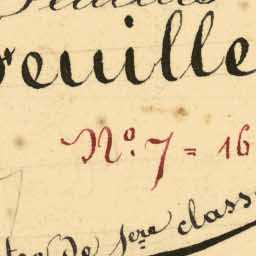 euille
N.º 7 = 16
de 1ère class